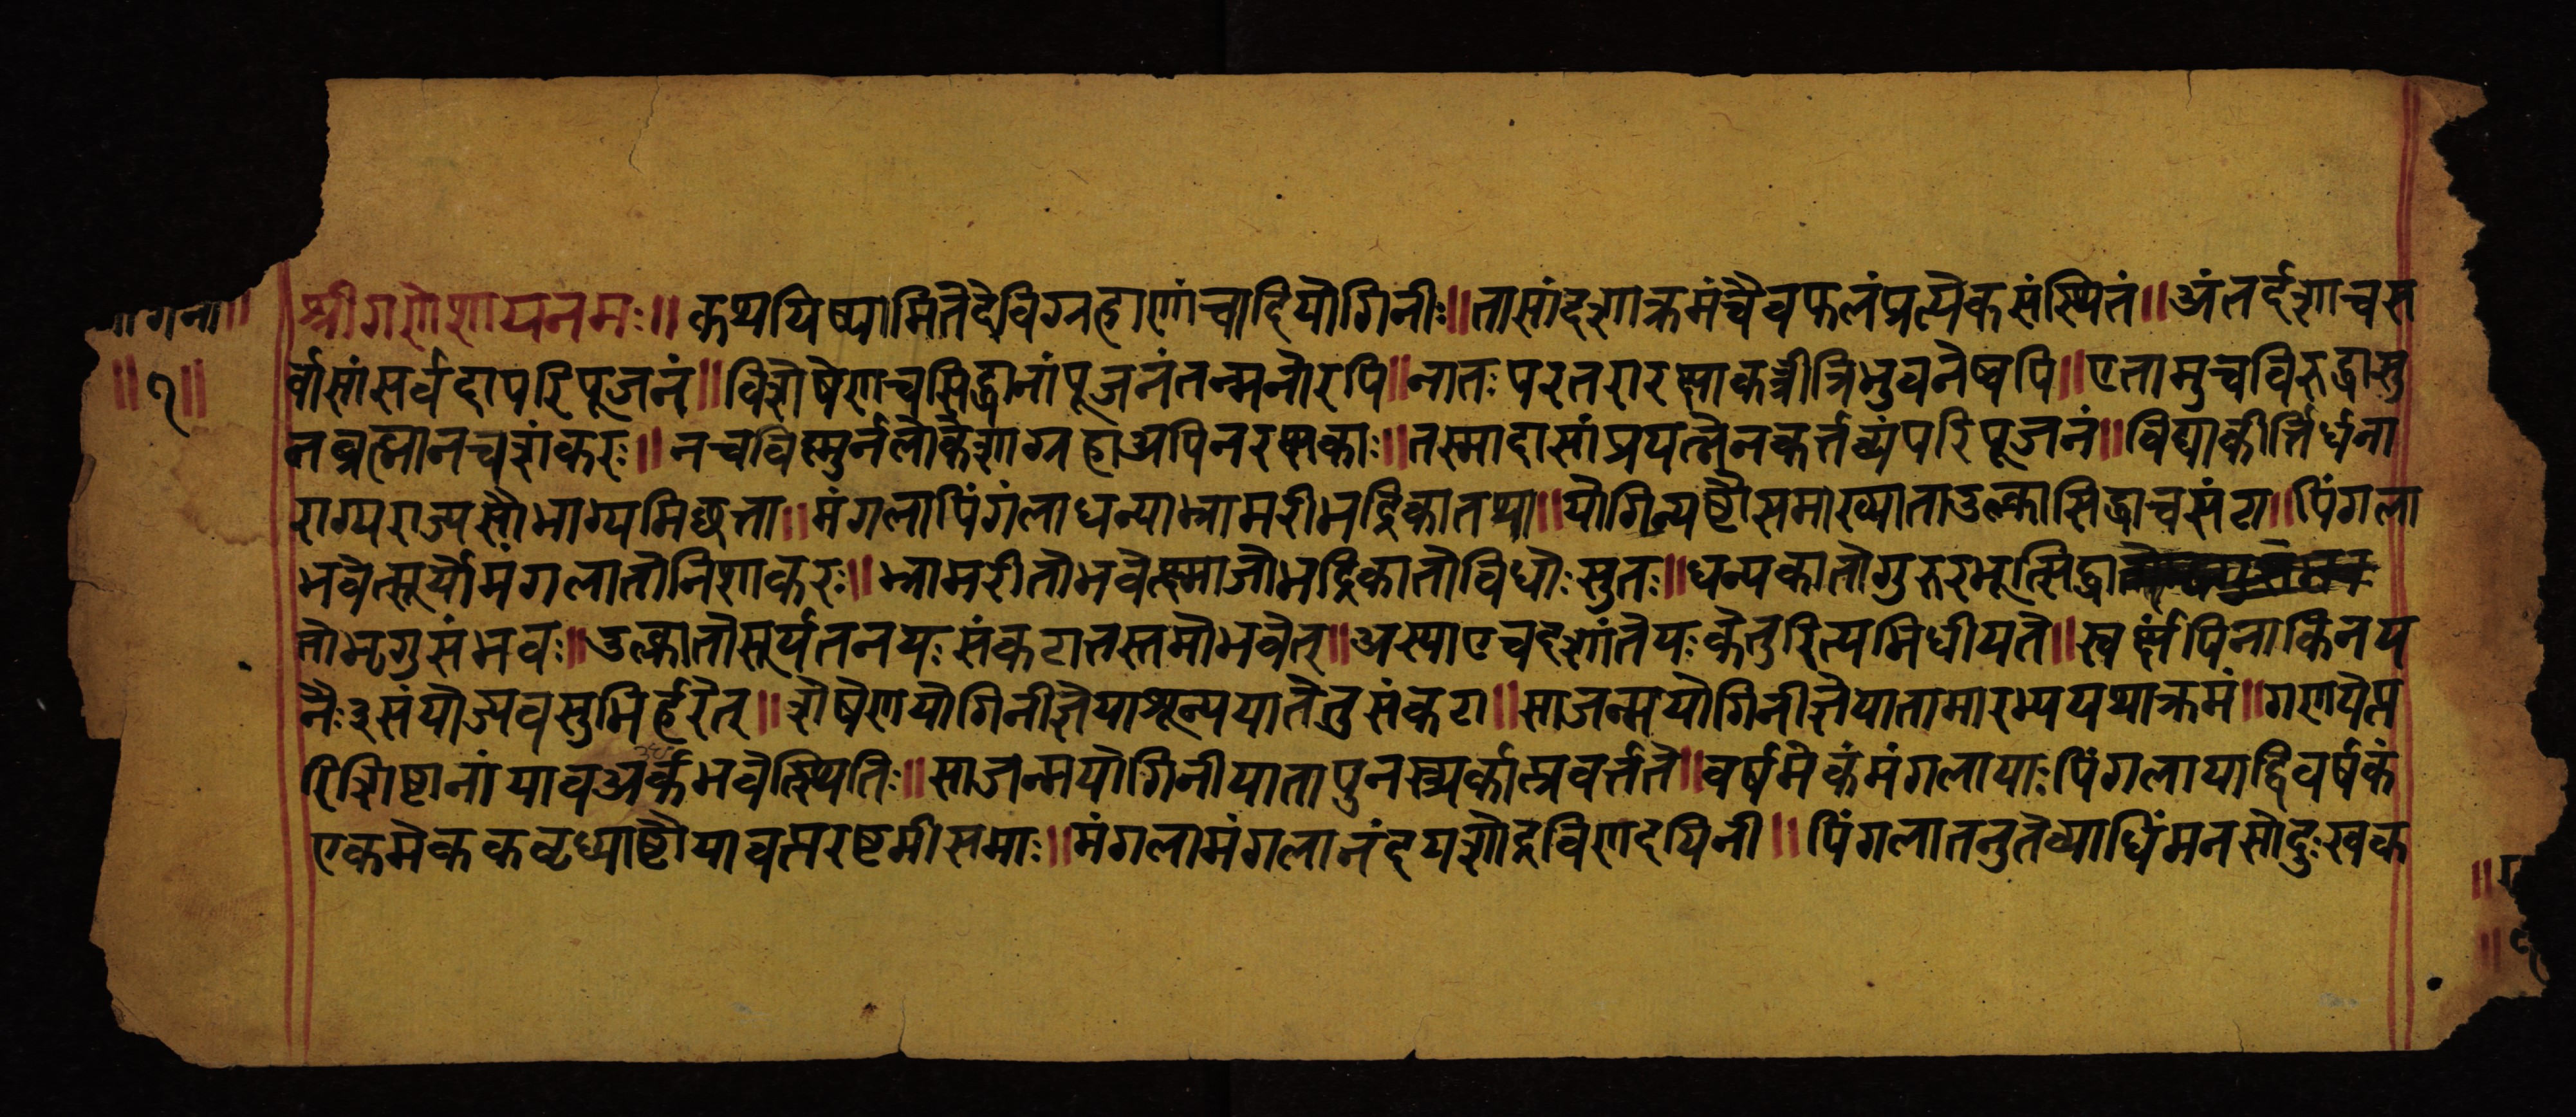 श्रीगणेशायनमः॥ कथयिष्यामितेदेविग्रहाणांचादियोगिनीः॥तासांदशाक्रमंचैवफलंप्रत्येकसंस्थितं॥अंतर्द्दशाचस
र्वासांसर्वदापरिपूजनं॥विशेषेणचसिद्धानांपूजनंतन्मनोरपि॥नातःपरतरारक्षाकर्त्रीत्रिभुवनेष्वपि॥एतामुचविरुद्धासु
नब्रह्मानचशंकरः॥नचविष्मुर्नलोकेशाग्रहाअपिनरक्षकाः॥तस्मादासांप्रयत्नेनकर्त्तव्यंपरिपूजनं॥विद्याकीर्त्तिर्धना
राग्यराज्यसौभाग्यमिछत्ता॥मंगलापिंगंलाधन्याभ्रामरीभद्रिकातथा॥योगिन्यष्टौसमाख्याताउल्कासिद्धाचसंटा॥पिंगला
भवेत्सूर्योमंगलातोनिशाकरः॥भ्रामरीतोभवेत्क्ष्माजोभद्रिकातोविधोःसुतः॥धन्यकातोगुरुरभूत्सिद्धा
तोभृगुसंभवः॥उल्कातोसूर्यतनयःसंकटातस्तमोभवेत्॥अस्याएवदशांतेयःकेतुरित्यभिधीयते॥स्वर्क्षंपिनाकिनय
नैः३संयोज्यवसुभिर्हरेत्॥शेषेणयोगिनीज्ञेयाशून्ययातेतुसंकटा॥साजन्मयोगिनीज्ञेयातामारभ्ययथाक्रमं॥गणयेत्प
रिशिष्टानांयावअर्कभवेत्स्थितिः॥साजन्मयोगिनीयातापुनस्त्र्यर्कात्प्रवर्त्तते॥वर्षमेकंमंगलायाःपिंगलायाद्विवर्षकं
एकमेककवृध्याष्टौयावत्परष्टमीसमाः॥मंगलामंगलानंदयशोद्रविणदयिनी॥पिंगलातनुतेव्याधिंमनसोदुःखक
गिना॥
॥१॥